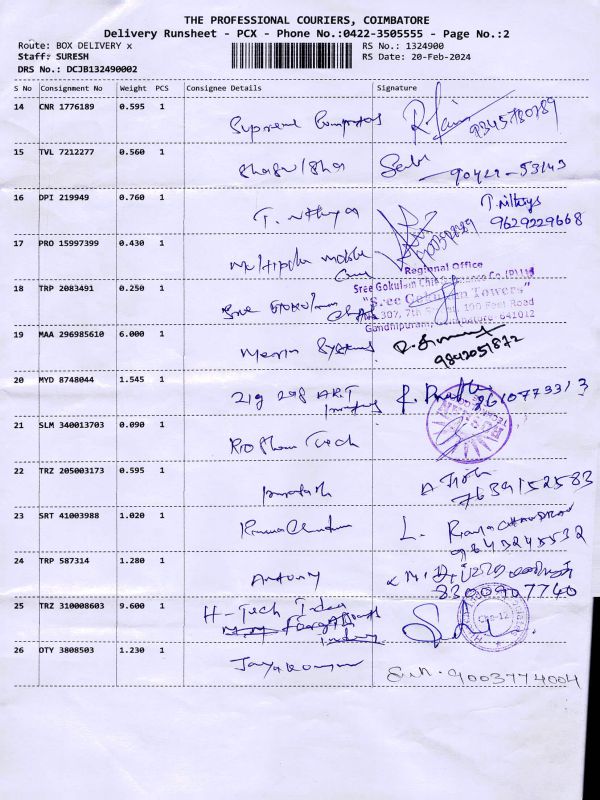 THE PROFESSIONAL COURIERS, COIMBATORE
Delivery Runsheet - PCX - Phone No.:0422-3505555 - Page No.:2
Route: BOX DELIVERY x RS No.: 1324900
Staff: SURESH RS Date: 20-Feb-2024
DRS No.: DCJB132490002
S No Consignment No Weight PCS Consignee Details Signature
14 CNR 1776189 0.595 1 Supreme Computers
9345780789
15 TVL 7212277 0.560 1
90422-53143
16 DPI 219949 0.760 1 T. nithya T. Nithys
9629229668
17 PRO 15997399 0.430 1 Multiple mobile
Regional Office
18 TRP 2083491 0.250 1 Sree Gokulam Chit
"Sree Gokulam Towers"
307, 100 Feet Road
Gandhipuram, Coimbatore 641012
19 MAA 296985610 6.000 1 Systems
9842051872
20 MYD 8748044 1.545 1 Zig zag ART
8610773313
21 SLM 340013703 0.090 1 Tech
22 TRZ 205003173 0.595 1
7639152583
23 SRT 41003988 1.020 1 Ramachandran L. Ramachandran
9843245532
24 TRP 587314 1.280 1 Antony
8300907740
25 TRZ 310008603 9.600 1 H-Tech
CBE-12
26 DTY 3808503 1.230 1 Jayakumar
9003774004